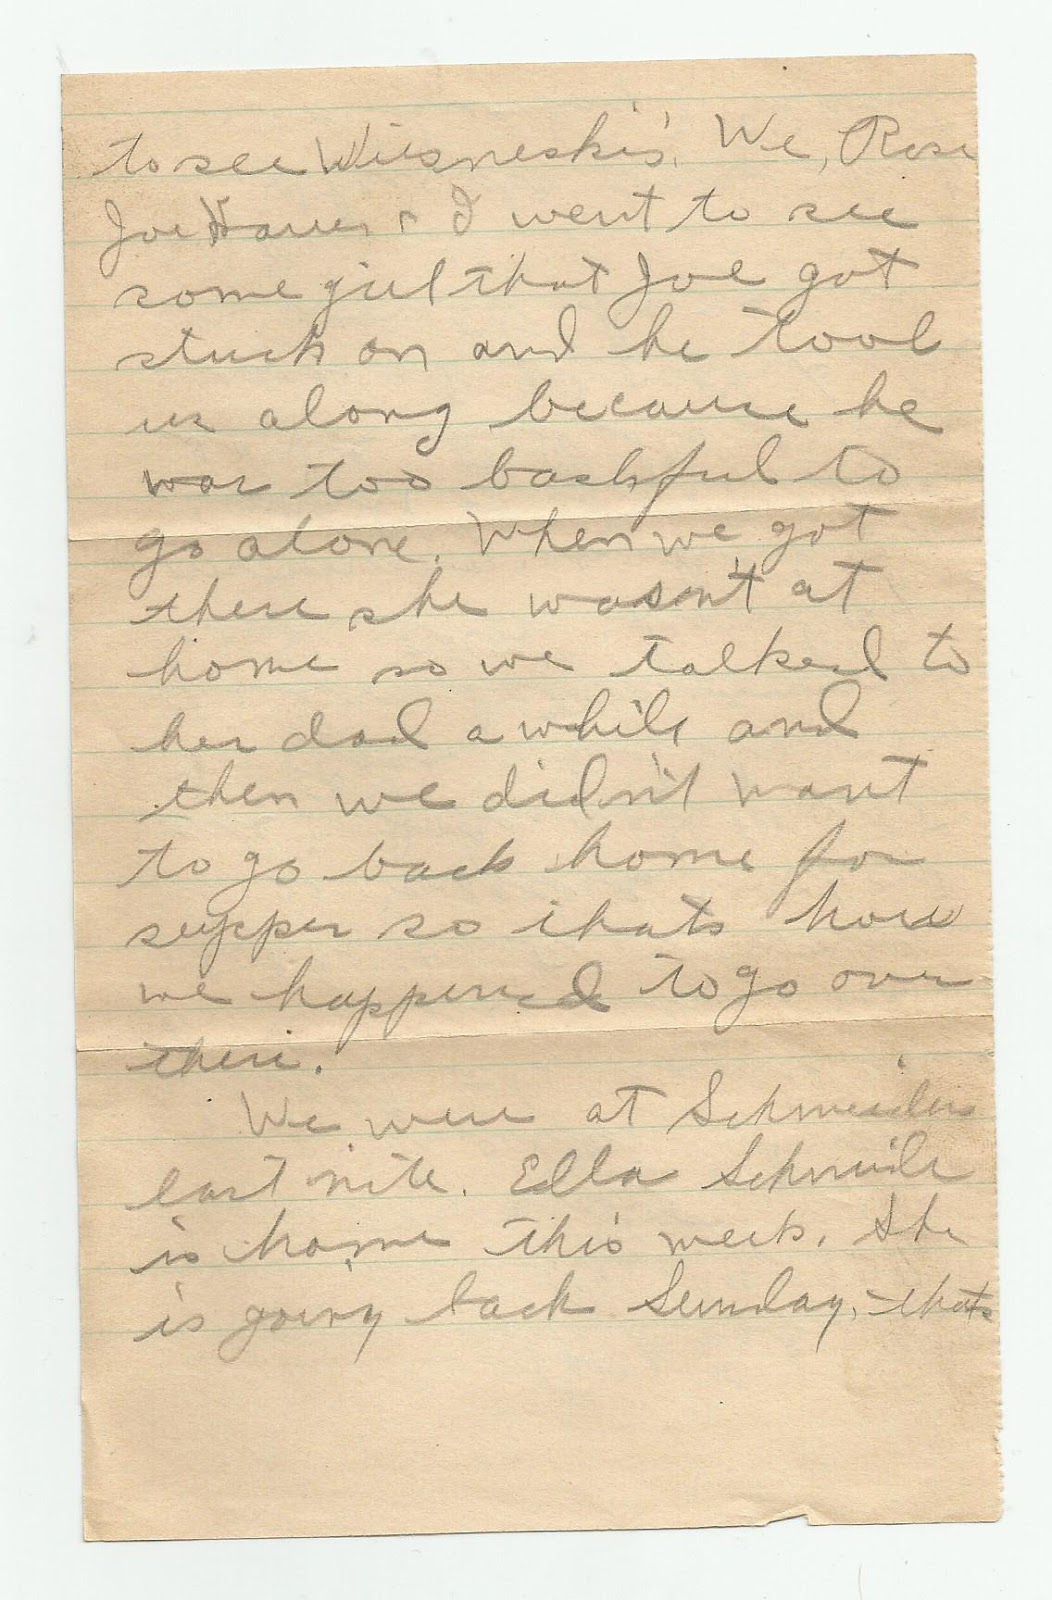 to see Wiesneskis'. We, Rose
Joe & I went to see
some girl that Joe got
stuck on and he took
us along because he
was too bashful to
go alone. When we got
there she wasn't at
home so we talked to
her dad a while and
then we didn't want
to go back home for
supper so thats how
we happened to go over
there.
We were at
last nite. Ella
is home this week. She
is going back Sunday, thats